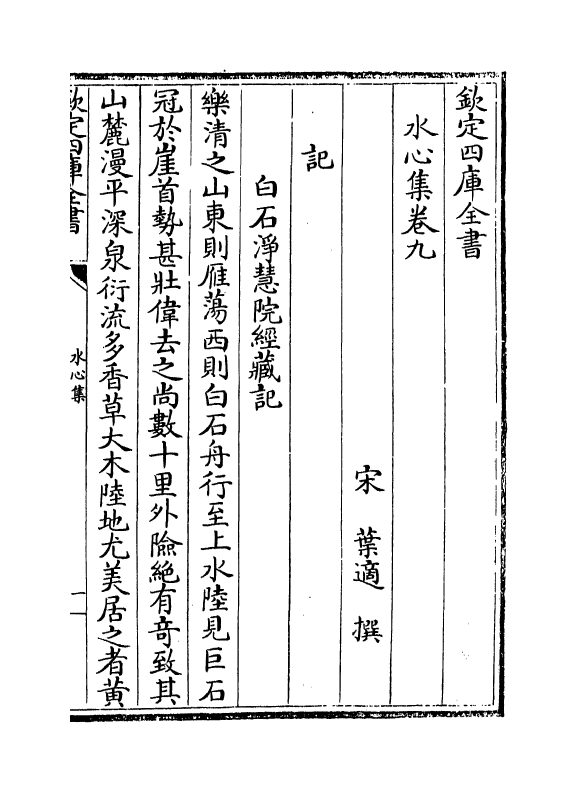 欽定四庫全書
水心集卷九
宋 葉適 撰
記
白石淨慧院經藏記
樂清之山東則雁蕩西則白石舟行至上水陸見巨石
冠於崖首勢甚壯偉去之尚數十里外險絶有竒致其
山麓漫平深泉衍流多香草大木陸地尤美居之者黄
欽定四庫全書
水心集
一